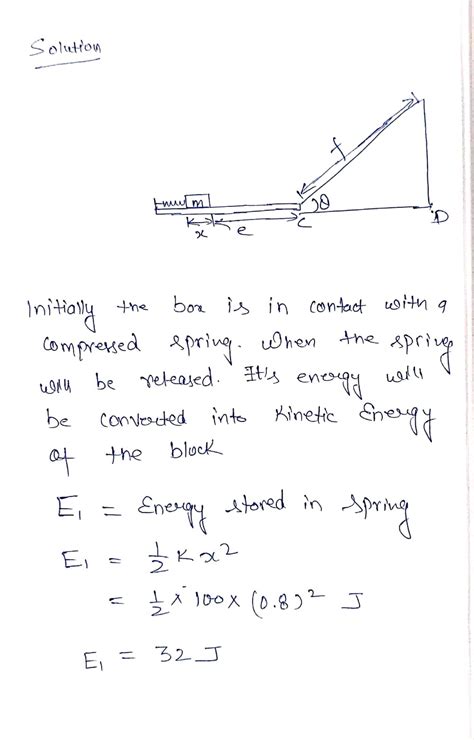 Solution
f
m
θ
x
e
C
D
Initially the box is in contact with a
compressed spring. When the spring
will be released. It's energy will
be converted into Kinetic Energy
of the block
E₁ = Energy stored in spring
E₁ = 1/2 K x²
= 1/2 × 100 × (0.8)² J
E₁ = 32 J